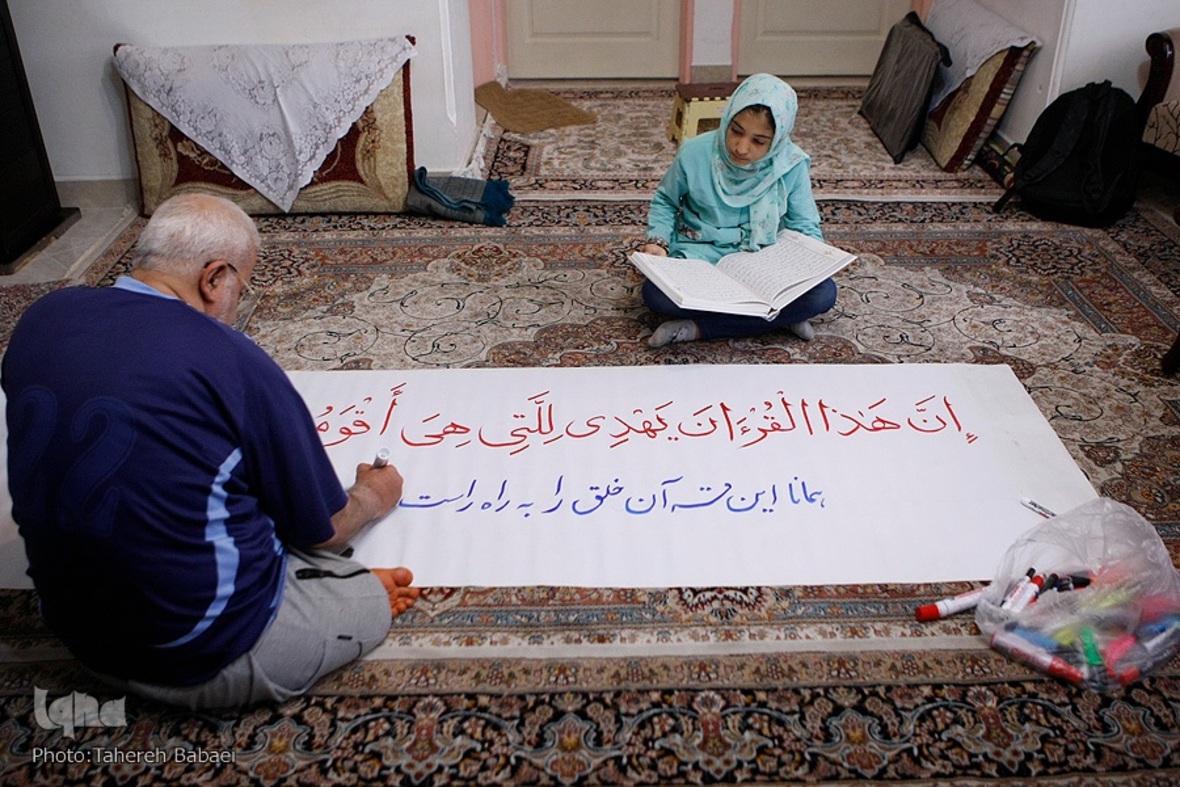 إِنَّ هَٰذَا الْقُرْءَانَ يَهْدِي لِلَّتِي هِيَ أَقْوَمُ
همانا این قرآن خلق را به راه راست
iqna
Photo: Tahereh Babaei
22